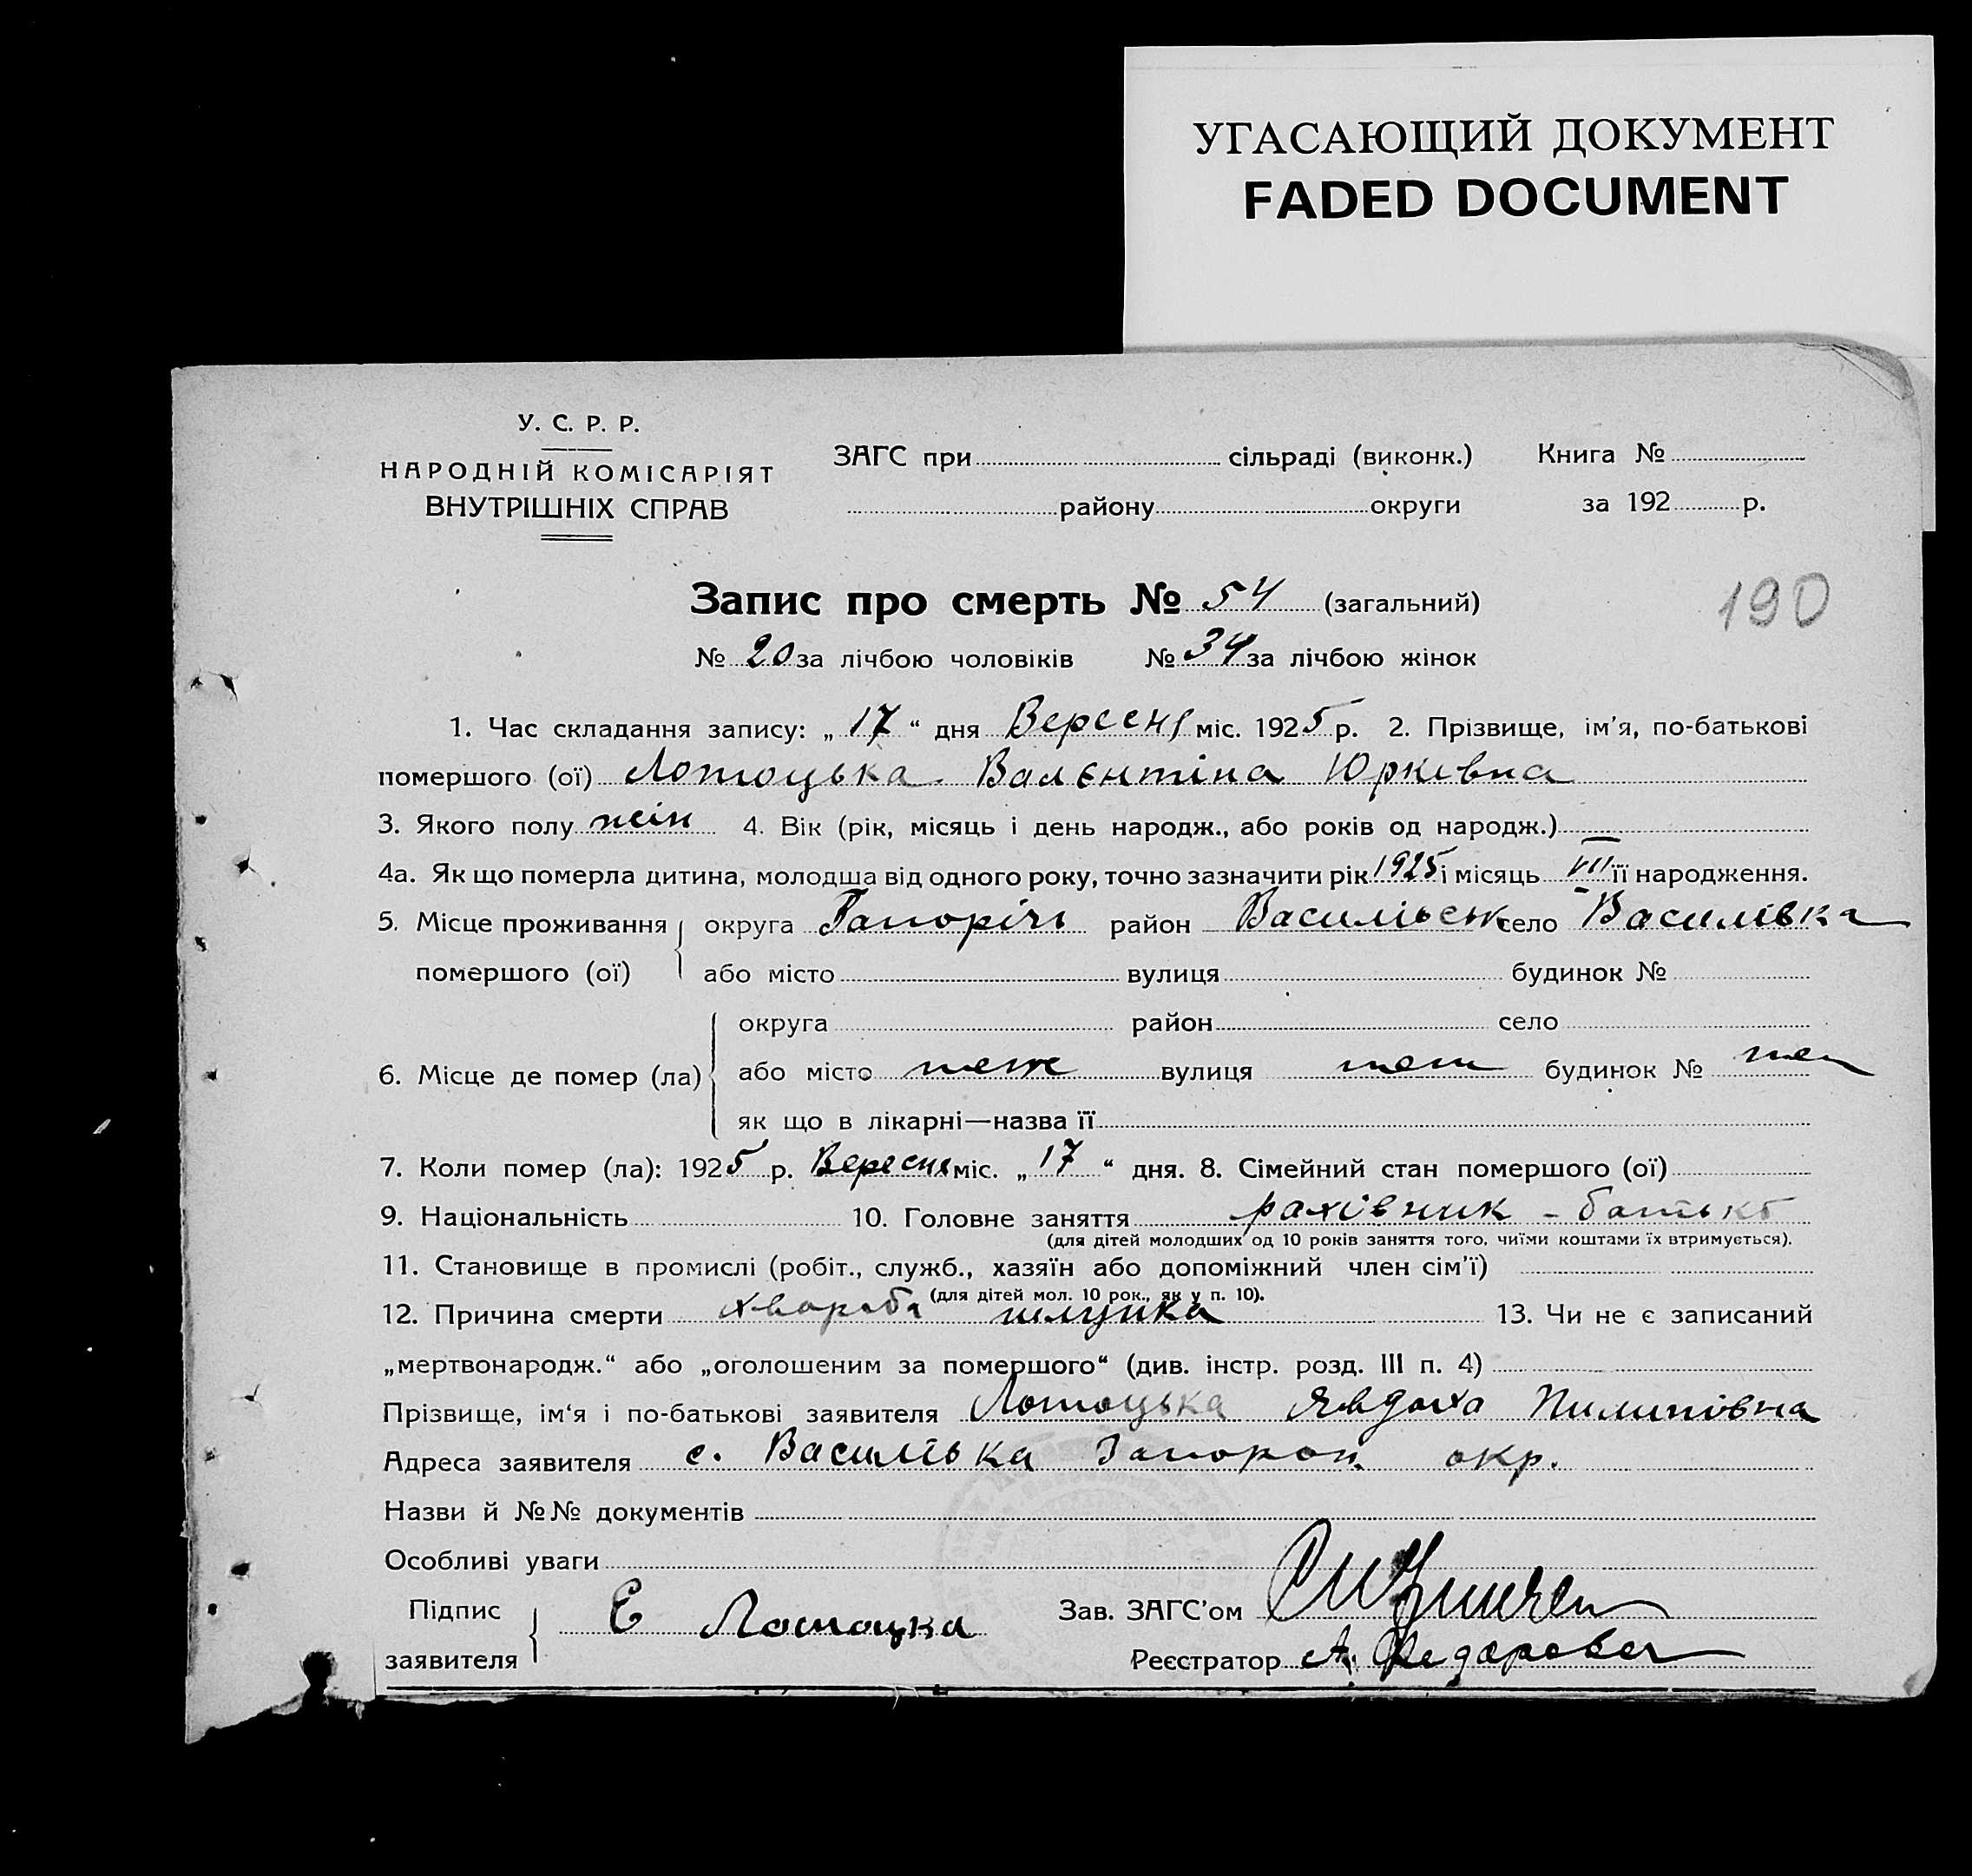 УГАСАЮЩИЙ ДОКУМЕНТ
FADED DOCUMENT
У. С. Р. Р.
НАРОДНІЙ КОМІСАРІЯТ
ВНУТРІШНІХ СПРАВ
ЗАГС при сільраді (виконк.) Книга №
району округи за 192 р.
Запис про смерть № 54 (загальний)
190
№ 20 за лічбою чоловіків № 34 за лічбою жінок
1. Час складання запису: „ 17 “ дня Вересня міс. 1925 р. 2. Прізвище, ім'я, по-батькові
помершого (ої) Лотоцька Валєнтіна Юрківна
3. Якого полу жін 4. Вік (рік, місяць і день народж., або років од народж.)
4а. Як що померла дитина, молодша від одного року, точно зазначити рік 1925 і місяць VIII її народження.
5. Місце проживання округа Запоріж район Василівськ село Василівка
помершого (ої) або місто вулиця будинок №
округа район село
6. Місце де помер (ла) або місто теж вулиця теж будинок № теж
як що в лікарні—назва її
7. Коли помер (ла): 1925 р. Вересня міс. „ 17 “ дня. 8. Сімейний стан помершого (ої)
9. Національність 10. Головне заняття рахівник - батько
(для дітей молодших од 10 років заняття того, чиїми коштами їх втримується).
11. Становище в промислі (робіт., служб., хазяїн або допоміжний член сім'ї)
(для дітей мол. 10 рок., як у п. 10).
12. Причина смерти хвороба шлунка 13. Чи не є записаний
„мертвонародж.“ або „оголошеним за помершого“ (див. інстр. розд. III п. 4)
Прізвище, ім'я і по-батькові заявителя Лотоцька Явдоха Пилипівна
Адреса заявителя с. Василівка Запорож. окр.
Назви й №№ документів
Особливі уваги
Підпис Е Лотоцка Зав. ЗАГС'ом
заявителя Реєстратор А. Федорович